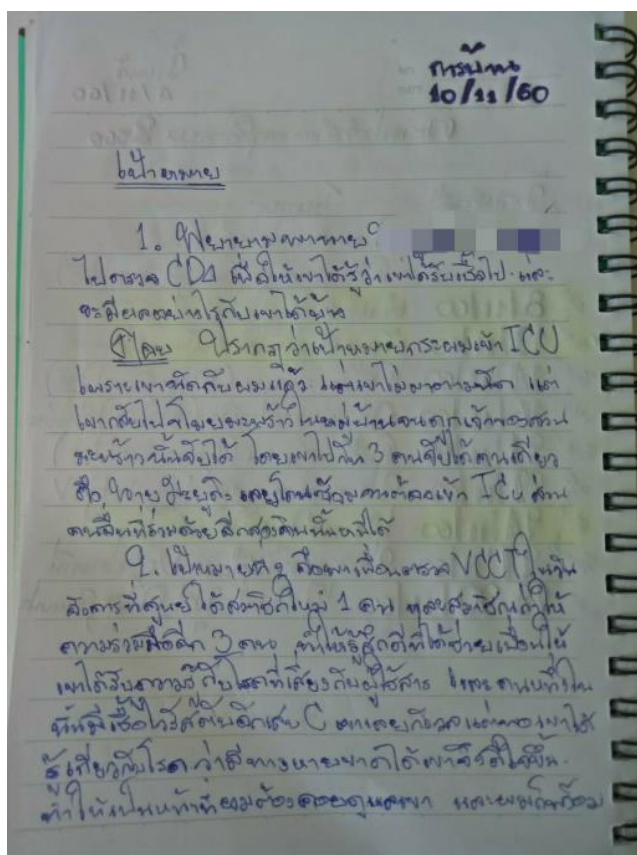 การบ้าน
10/11/60
เป้าหมาย
1. พยายามพานาย
ไปตรวจ CD4 เพื่อให้เขาได้รู้ว่าเขาได้รับเชื้อไป และ
จะมีผลอย่างไรกับเขาได้บ้าน
โดย ปรากฏว่าเป้าหมายกระผมเข้า ICU
เพราะเขานัดกับผมแล้ว แต่เขาไม่มาตามนัด แต่
เขากลับไปขโมยมะพร้าวในหมู่บ้านจนถูกเจ้าของสวน
มะพร้าวนั้นจับได้ โดยเขาไปกัน 3 คนจับได้คนเดียว
คือ นาย เลยโดนซ้อมจนต้องเข้า ICU ส่วน
คนอื่นที่ร่วมด้วยอีกสองคนนั้นหนีได้
2. เป้าหมายที่ 2 คือพาเพื่อนตรวจ VCCT ในวัน
อังคารที่ศูนย์ได้สมาชิกใหม่ 1 คน และสมาชิกเก่าให้
ความร่วมมืออีก 3 คน ทำให้รู้สึกดีที่ได้ช่วยเพื่อนให้
เขาได้รับความรู้กับโรคที่เสี่ยงกับผู้ใช้สาร และคนหนึ่งใน
นั้นมีเชื้อไวรัสตับอักเสบ C เขาเลยกังวลแต่พอเขาได้
รู้เกี่ยวกับโรคว่ามีทางหายขาดได้เขาจึงดีใจขึ้น
ทำให้เป็นหน้าที่ผมต้องคอยดูแลเขา และผมก็พร้อม